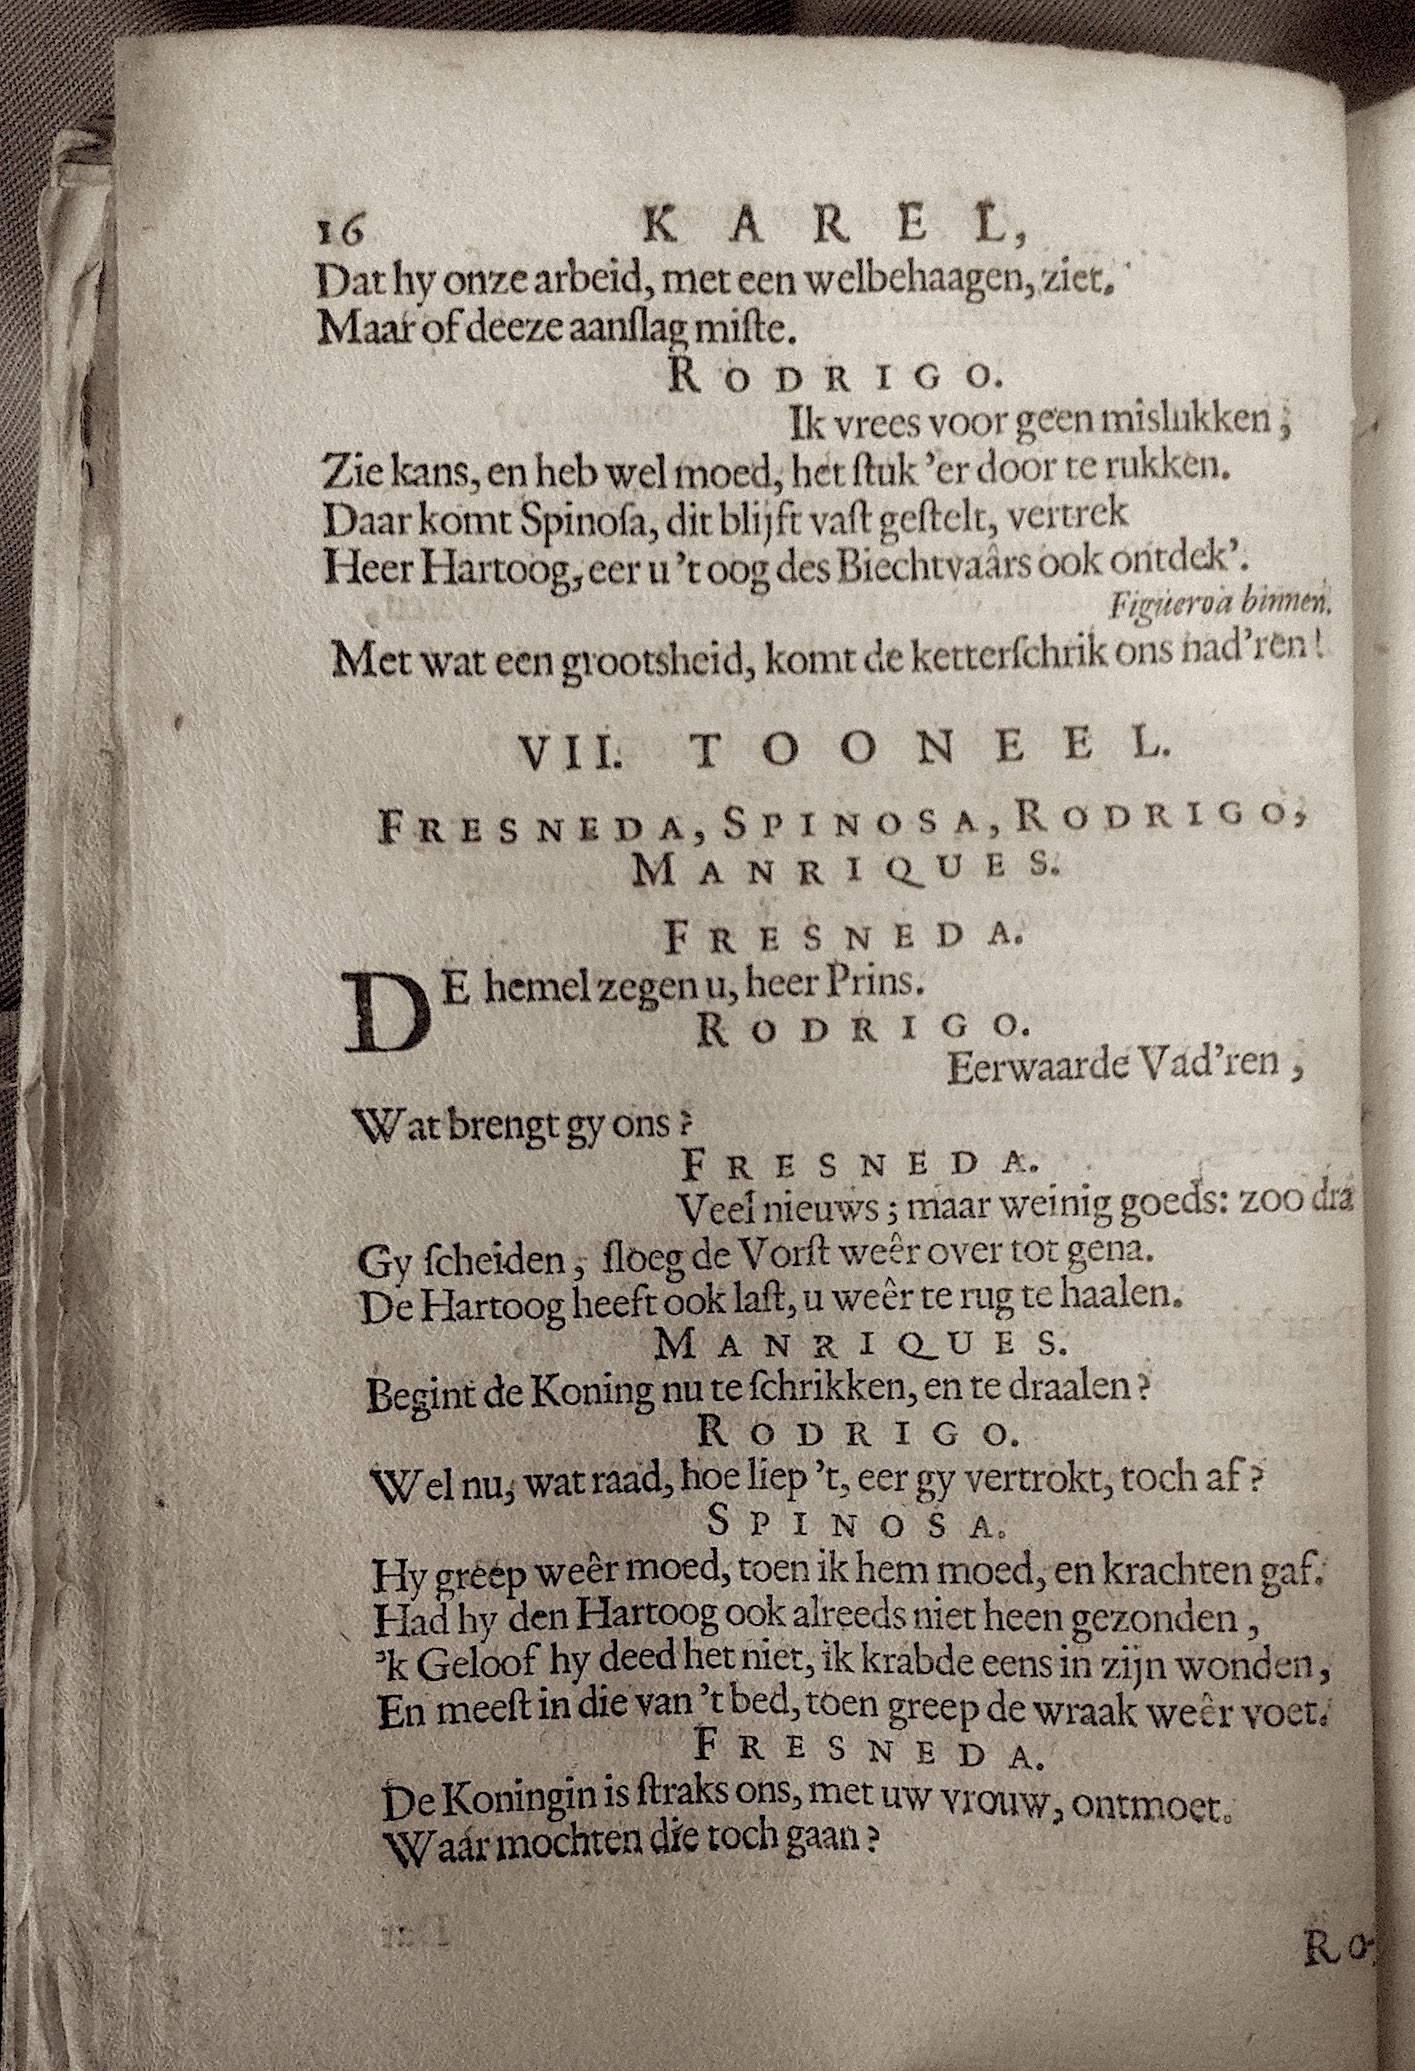 16 KAREL,
Dat hy onze arbeid, met een welbehaagen, ziet.
Maar of deeze aanſlag miſte.
RODRIGO.
Ik vrees voor geen mislukken;
Zie kans, en heb wel moed, het ſtuk 'er door te rukken.
Daar komt Spinoſa, dit blijft vaſt geſtelt, vertrek
Heer Hartoog, eer u 't oog des Biechtvaârs ook ontdek'.
Figueroa binnen.
Met wat een grootsheid, komt de ketterſchrik ons nad'ren!
VII. TOONEEL.
FRESNEDA, SPINOSA, RODRIGO,
MANRIQUES.
FRESNEDA.
DE hemel zegen u, heer Prins.
RODRIGO.
Eerwaarde Vad'ren,
Wat brengt gy ons?
FRESNEDA.
Veel nieuws; maar weinig goeds: zoo dra
Gy ſcheiden, ſloeg de Vorſt weêr over tot gena.
De Hartoog heeft ook laſt, u weêr te rug te haalen.
MANRIQUES.
Begint de Koning nu te ſchrikken, en te draalen?
RODRIGO.
Wel nu, wat raad, hoe liep 't, eer gy vertrokt, toch af?
SPINOSA.
Hy greep weêr moed, toen ik hem moed, en krachten gaf.
Had hy den Hartoog ook alreeds niet heen gezonden,
'k Geloof hy deed het niet, ik krabde eens in zijn wonden,
En meeſt in die van 't bed, toen greep de wraak weêr voet.
FRESNEDA.
De Koningin is ſtraks ons, met uw vrouw, ontmoet.
Waar mochten die toch gaan?
RO-